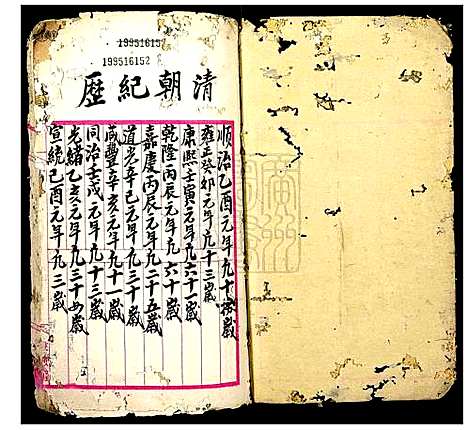 199516152
199516152
清朝紀歷
順治乙酉元年九十八歲
雍正癸卯元年九十三歲
康熙壬寅元年九六十一歲
乾隆丙辰元年九六十歲
嘉慶丙辰元年九二十五歲
道光辛巳元年九三十歲
咸豐辛亥元年九十一歲
同治壬戌元年九十三歲
光緒乙亥元年九三十四歲
宣統己酉元年九三歲